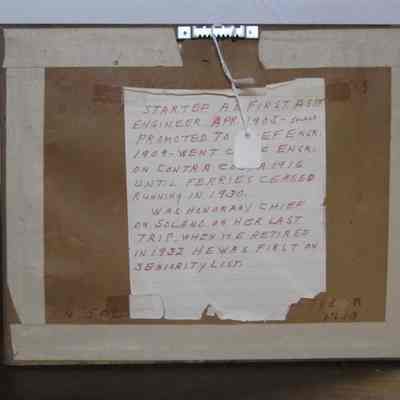 STARTED AS FIRST ASST
ENGINEER APR. 1905-
PROMOTED TO CHIEF ENGR.
1909- WENT CHIEF ENGR.
ON CONTRA COSTA 1916
UNTIL FERRIES CEASED
RUNNING IN 1930.
WAS HONORARY CHIEF
ON SOLANO ON HER LAST
TRIP. WHEN HE RETIRED
IN 1932 HE WAS FIRST ON
SENIORITY LIST.